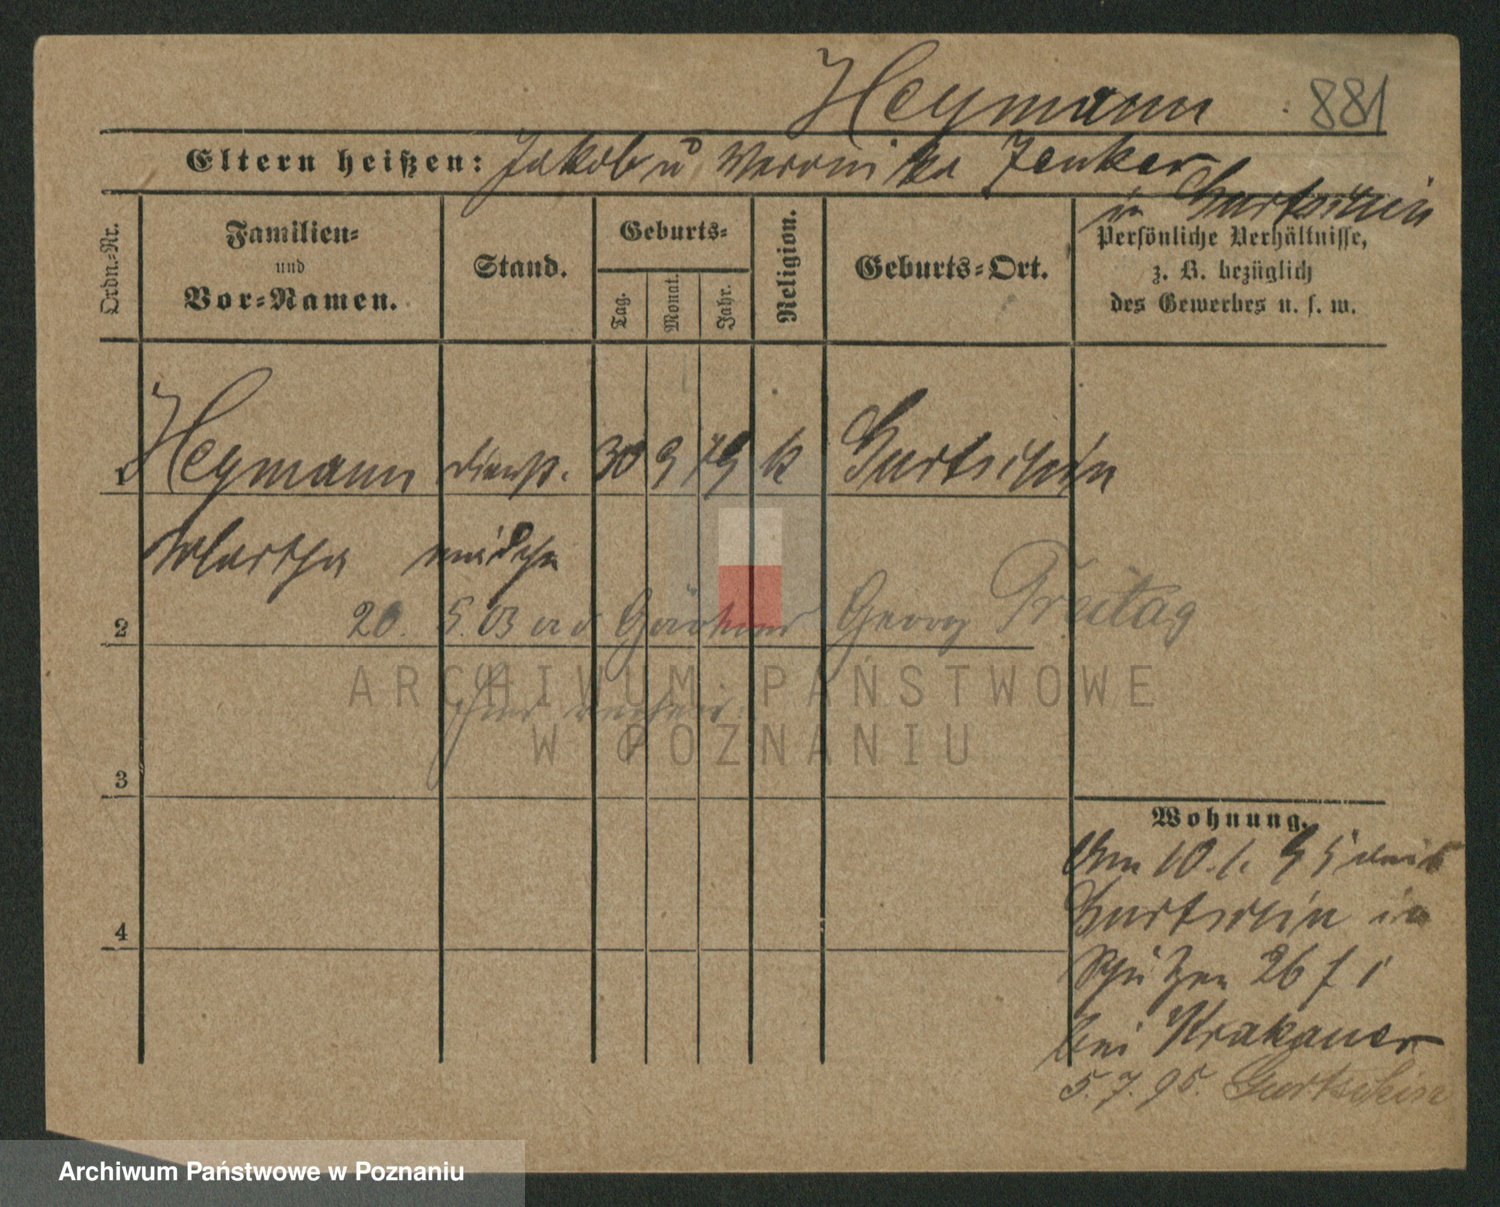 Heymann 881
Eltern heißen: Jakob u Weronika Zenker
in Gurtschin
Ordn.-Nr.
Familien-
und
Vor-Namen.
Stand.
Geburts-
Tag.
Monat.
Jahr.
Religion.
Geburts-Ort.
Persönliche Verhältnisse,
z. B. bezüglich
des Gewerbes u. s. w.
1 Heymann dienst. 30 9 79 k Gurtschin
Martha mädchen
2 20. 5. 03 Gärtner Georg Freitag
ARCHIWUM PAŃSTWOWE
W POZNANIU
3
Wohnung.
Am 10. 1. 95 aus
Gurtschin in
Schützen 26 f 1
bei Krakauer
5. 7. 95. Gurtschin
4
Archiwum Państwowe w Poznaniu